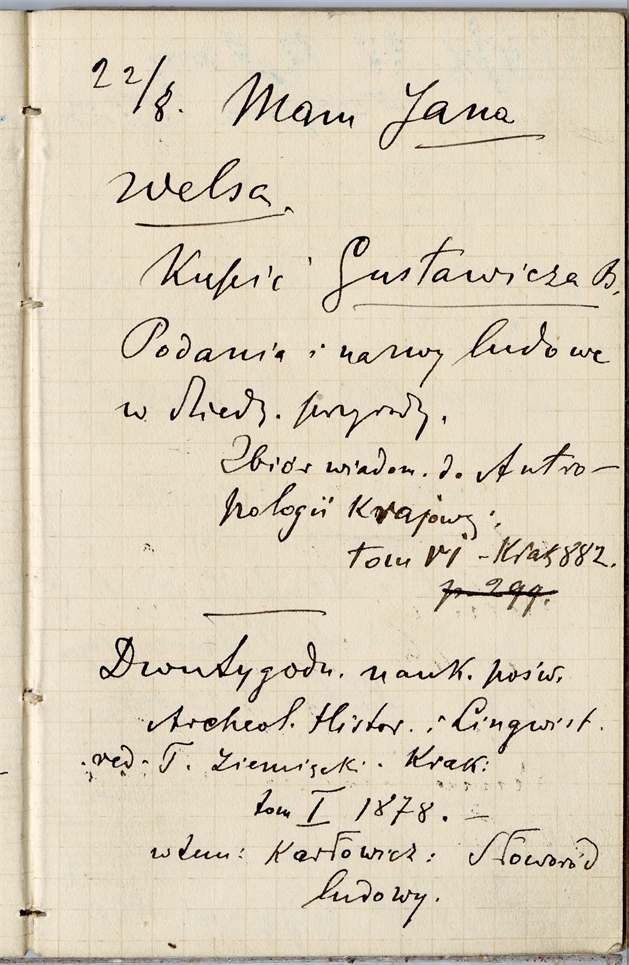 22/8. Mam Jana
Welsa.
Kupić Gustawicza B.
Podania i nazwy ludowe
w dziedz. przyrody.
Zbiór wiadom. do Antro-
pologii Krajowej.
tom VI - Krak 882.
p 299.
Dwutygodn. nauk. pośw.
Archeol. Histor. i Lingwist.
red. T. Ziemięcki. Krak:
tom I 1878. -
w tem: Karłowicz: Słoworód
ludowy.